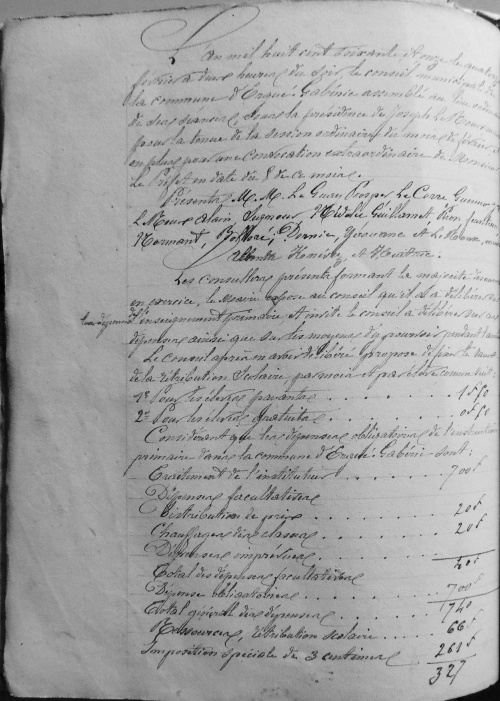 L'an mil huit cent soixante et onze le quatorze
février à deux heures du soir, le conseil municipal de
la commune d'Ergué-Gabéric assemblé au lieu ordinaire
de ses séances, sous la présidence de Joseph Le
pour la tenue de la session ordinaire du mois de février
en plus pour une convocation extraordinaire de Monsieur
Le Préfet en date du 8 de ce mois.
Présents M.M. Le Guay Prosper Le Corre
Le Moux Alain, Signour Nédélec Guillamet Rion
Normant, Bolloré, et Le
absents et
Les conseillers présents formant la majorité des membres
en exercice, le Maire expose au conseil qu'il a à délibérer sur
les dépenses de l'enseignement primaire et invite le conseil à délibérer sur ces
dépenses ainsi que sur les moyens d'y pourvoir pendant l'année
Le Conseil après en avoir délibéré propose de fixer le taux
de la rétribution scolaire par mois et par élève comme suit :
1º Pour les élèves payants . . . . 1f50
2º Pour les élèves gratuits . . . . 0f50
Considérant que les dépenses obligatoires de l'instruction
primaire dans la commune d'Ergué-Gabéric sont :
Traitement de l'instituteur . . . . 700f
Dépenses facultatives
Distribution de prix . . . . 20f
Chauffage des classes . . . . 20f
Dépenses imprévues . . . .
Total des dépenses facultatives 40f
Dépense obligatoire . . . . 700f
Total général des dépenses . . . . 740
Ressources, rétribution scolaire . . . . 66f
Imposition spéciale de 3 centimes 261f
327